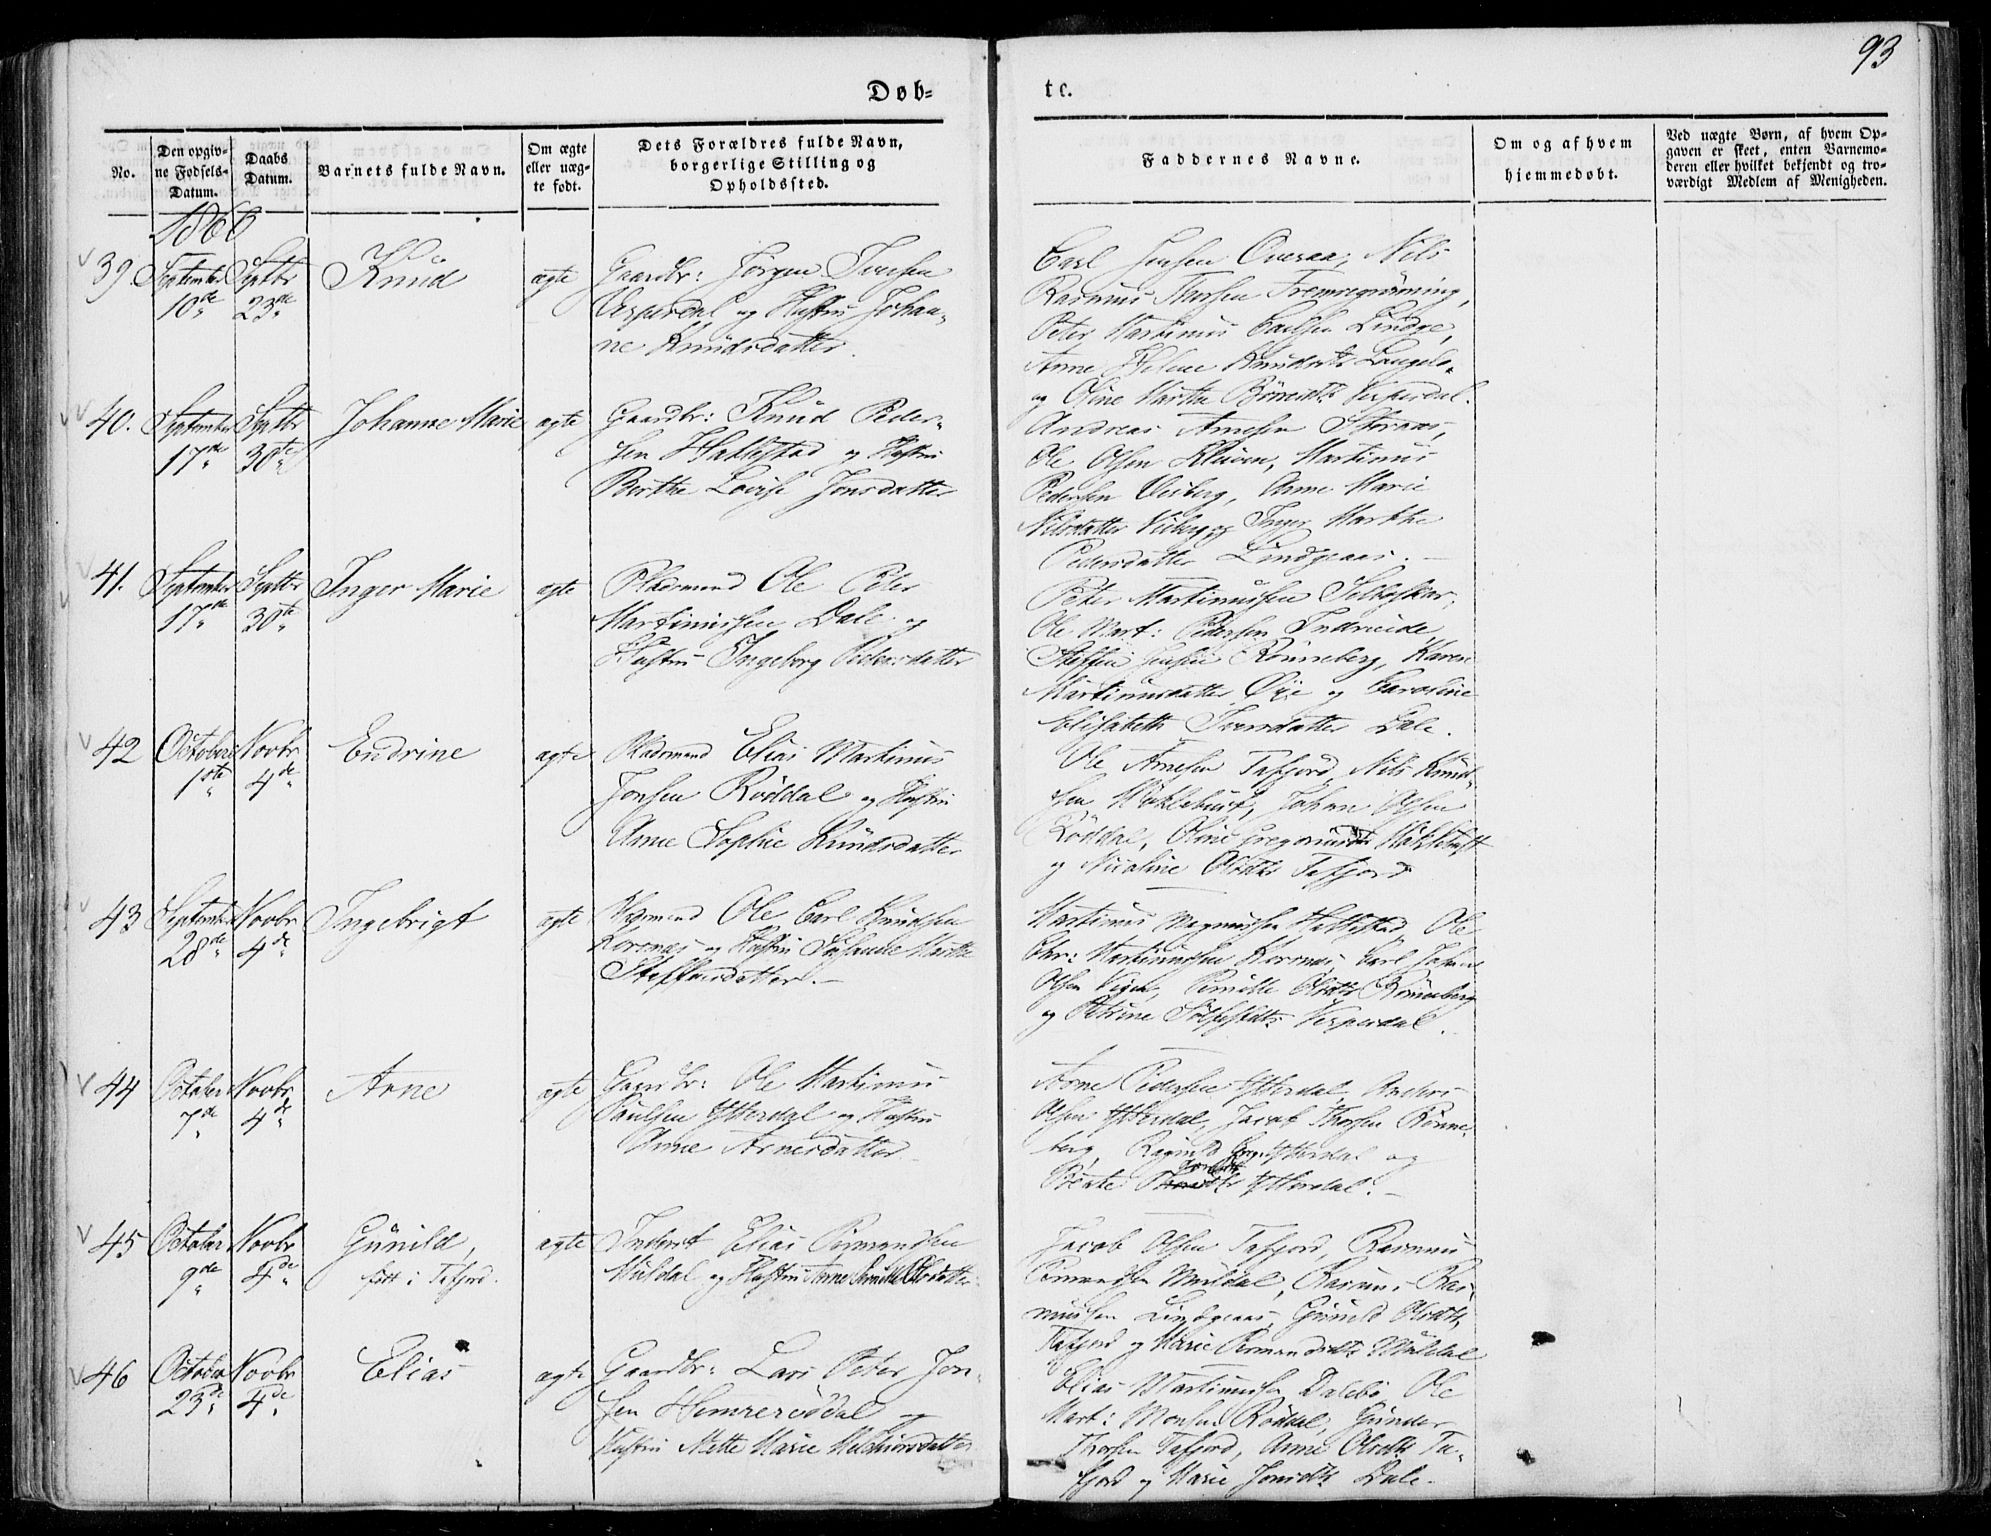 93
Døb-
te.
No.
Den opgiv-
ne Fødsels-
Datum.
Daabs
Datum.
Barnets fulde Navn.
Om ægte
eller uæg-
te født.
Dets Forældres fulde Navn,
borgerlige Stilling og
Opholdssted.
Faddernes Navne.
Om og af hvem
hjemmedøbt.
Ved uægte Børn, af hvem Op-
gaven er skeet, enten Barnemo-
deren eller hvilket bekjendt og tro-
værdigt Medlem af Menigheden.
1860
39.
September
10de
Septbr
23de
Knud
ægte
Gaardbr: Jörgen Iversen
Uspesdal og Hustru Johan-
ne Knudsdatter.
Carl Jensen Overaa, Nils
Rasmus Thorsen Fremregrönning,
Peter Martinus Paulsen Lindge,
Anne Helene
og Oline Marthe
40.
September
17de
Septbr
30te
Johanne Marie
ægte
Gaardbr: Knud Peder-
sen Hattestad og Hustru
Berthe Lovise Jonsdatter
Andreas Arnesen
Ole Olsen Kleiven, Martinus
Pedersen Viberg, Anne Marie
Nilsdatter Viberg og Inger Marthe
Pedersdatter Lindgaas.
41.
September
17de
Septbr
30te
Inger Marie
ægte
Pladsmand Ole Peter
Martinussen Dale og
Hustru Ingeborg Pedersdatter
Peter Martinussen Selboskar,
Ole Mart: Pedersen Indreeide,
Steffen Jensen Rönneberg, Karen
Martinusdatter Öie og Caroline
Elisabeth Iversdatter Dale.
42
October
1ste
Novbr
4de
Endrine
ægte
Pladsmand Elias Martinus
Jonsen Röddal og Hustru
Anne Sophie Knudsdatter
Ole Arnesen Tafjord, Nils Knud-
sen Möklebust, Johan Olsen
Röddal, Oline Möklebust
og Nicoline Olsdtr Tafjord
43
September
28de
Novbr
4de
Ingebrigt
ægte
Ole Carl Knudsen
Korsnæs og Hustru Susanne Marthe
Steffensdatter.
Martinus Magnussen Hattestad, Ole
Chr: Martinussen Korsnæs, Carl Johan
Olsen Vigen, Pernille Olsdtr Rönneberg
og Petrine
44
October
7de
Novbr
4de
Arne
ægte
Gaardbr: Ole Martinus
Paulsen Ytterdal og Hustru
Anne Arnesdatter
Arne Pedersen Ytterdal, Anders
Olsen Ytterdal, Jacob Thorsen Rönne-
berg, Ragnild Ytterdal og
Beate Ytterdal.
45
October
9de
Novbr
4de
Gunild,
født i Tafjord.
ægte
Inderst Elias Permundsen
Muldal og Hustru Anne Olsdatter
Jacob Olsen Tafjord, Rasmus
Permundsen Muldal, Rasmus Ras-
mussen Lindgaas, Gunild Olsdtr
Tafjord og Marie Permundsdtr Muldal
46
October
23de
Novbr
4de
Elias
ægte
Gaardbr: Lars Peter Jon-
sen Hemreröddal og
Hustru Mette Marie Melchiorsdatter
Elias Martinusen Dalebö, Ole
Mart: Monsen Röddal, Gunder
Thorsen Tafjord, Anne Olsdtr Ta-
fjord og Marie Jonsdtr Dale.